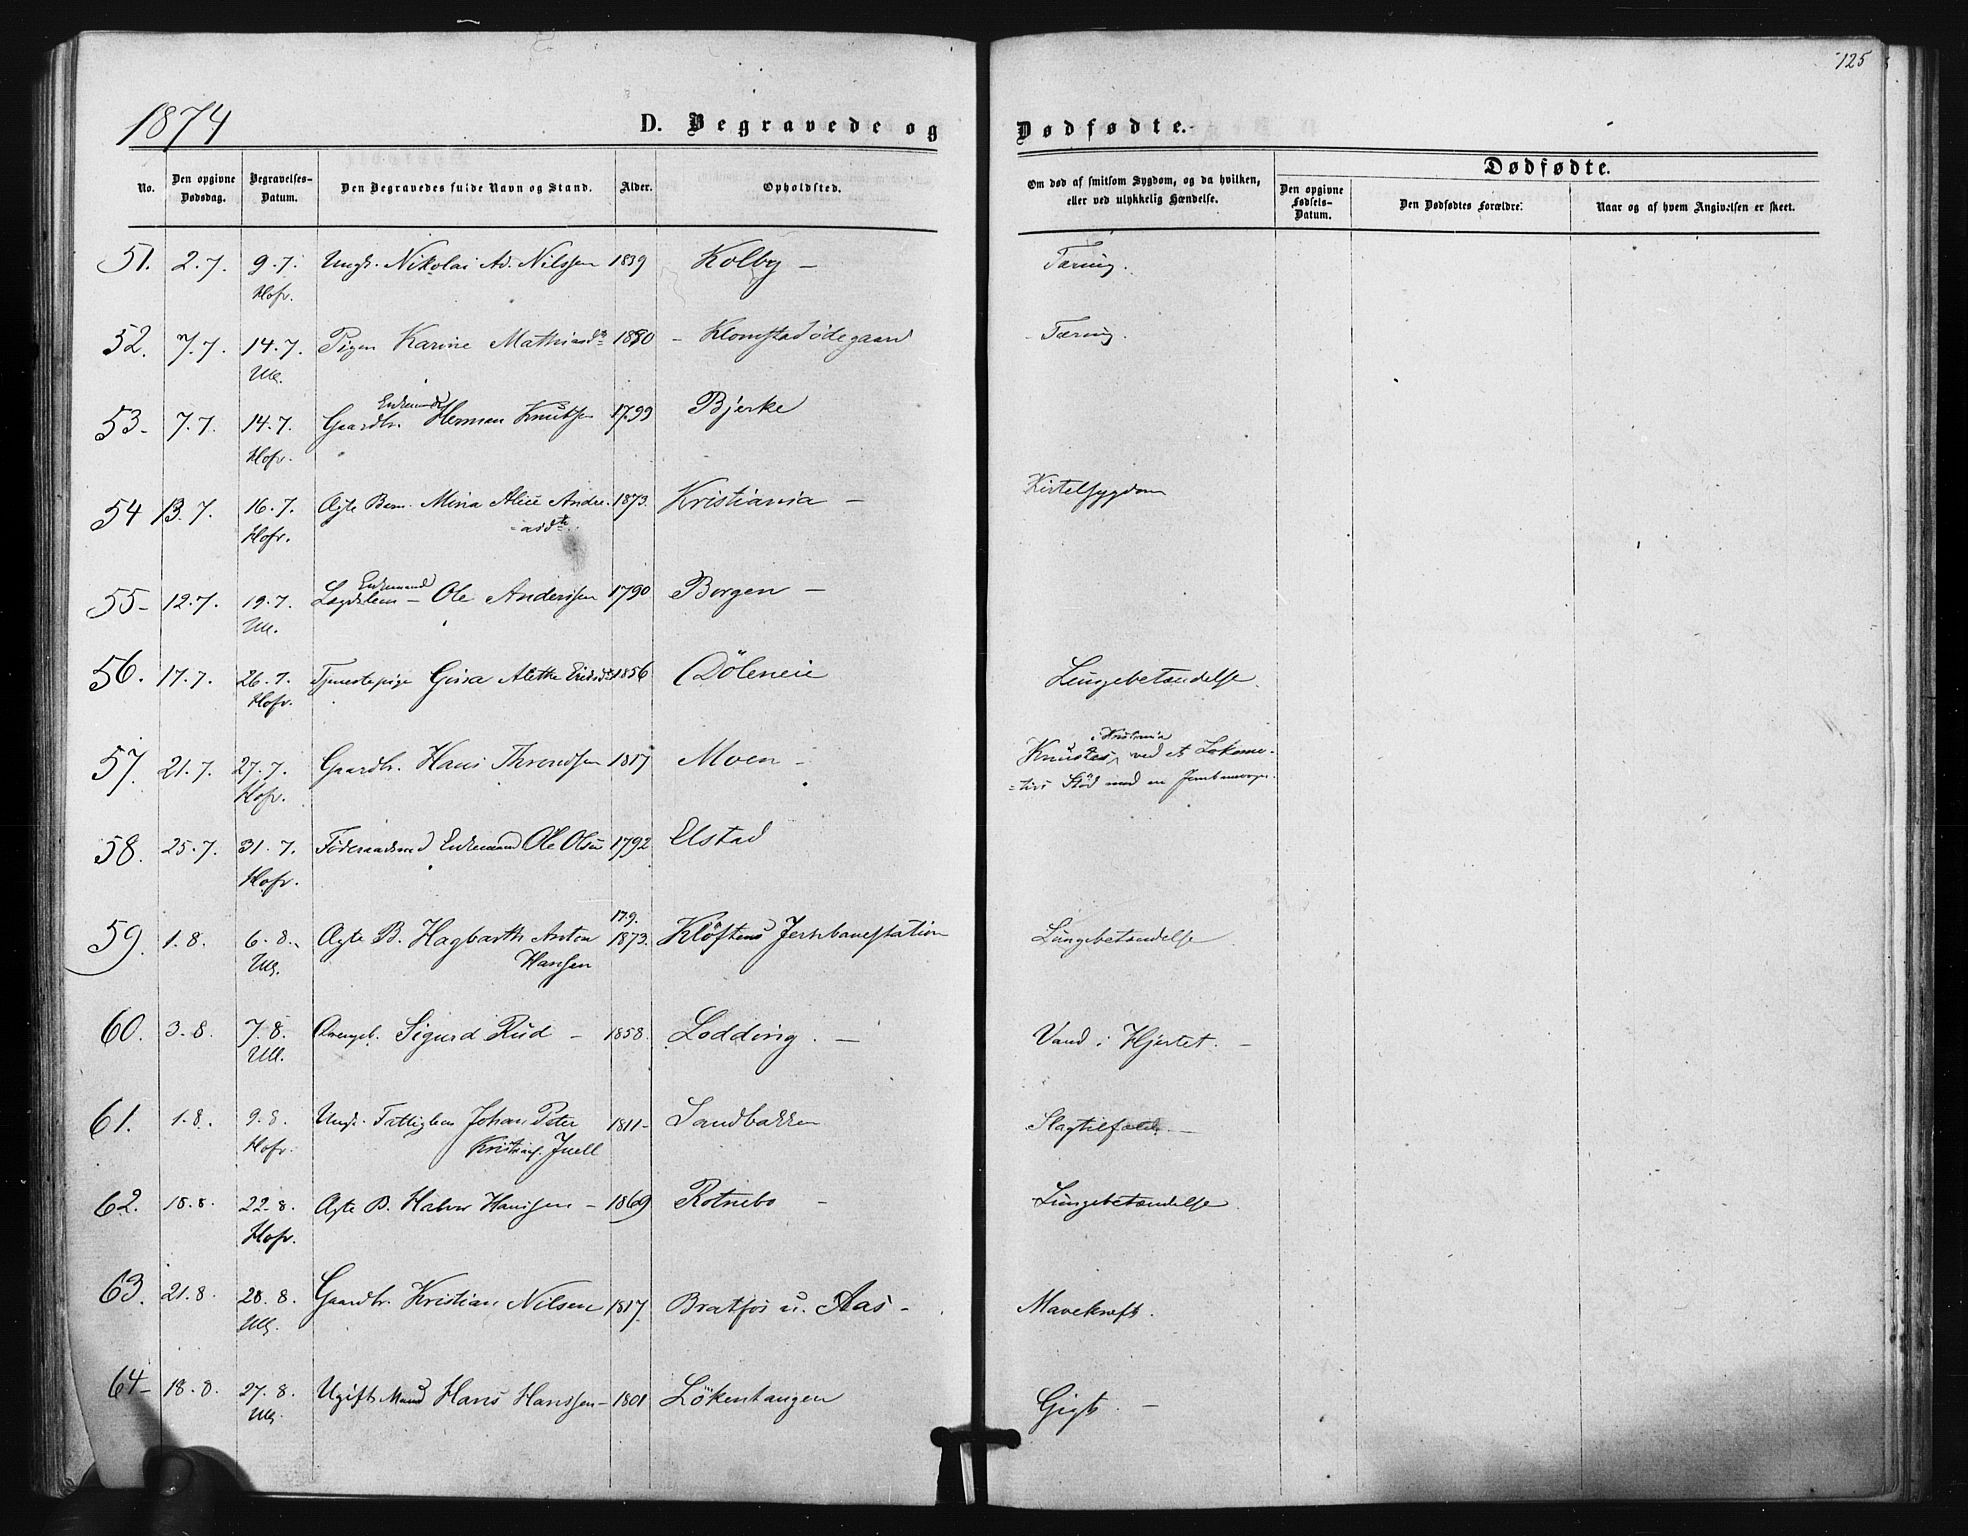 125
1874
D. Begravede og Dødfødte.
Dødfødte.
No.
Den opgivne Dødsdag.
Begravelses-Datum.
Den Begravedes fulde Navn og Stand.
Alder.
Opholdsted.
Om død af smitsom Sygdom, og da hvilken, eller ved ulykkelig Hændelse.
Den opgivne Fødsels-Datum.
Den Dødfødtes Forældre.
Naar og af hvem Angivelsen er skeet.
51. 2.7. 9.7. Ungk. Nikolai Ad. Nilssen 1839 Kolby — Tæring.
Hofv.
52. 7.7. 14.7. Pigen Karine Mathiasdtr - Klomstadødegaard - Tæring.
Ull.
Enkemand
53- 7.7. 14.7. Gaardbr. Herman Knutsen 1799 Bjerke
Hofv.
54 13.7. 16.7. Ægte Barn. Mina Alice Andre- 1873. Kristiania — Kirtelsygdom
Hofv. -asdtr.
Enkemand
55- 12.7. 19.7. Lægdslem — Ole Anderssen 1790 Borgen —
Ull.
56. 17.7. 26.7. Tjenestepige Gina Alethe 1856 Döleneie Lungebetændelse.
Hofv.
i Kristiania
57. 21.7. 27.7. Gaardbr. Hans Throndsen 1817 Moen - Knustes, ved et Lokomo-
Hofv. -tivs Stöd med en Jernbanevogn.
58. 25.7. 31.7. Föderaadsmd Enkemand Ole Olsen 1792 Elstad
Hofv.
17.9.
59. 1.8. 6.8. Ægte B. Hagbarth Anton 1873. Klöftens Jernbanestation Lungebetændelse
Ull. Hansen
60. 3.8 7.8. Sigurd Rud — 1858. Lodding. — Vand i Hjertet. —
Ull.
61. 1.8. 9.8. Ungk. Fattiglem Johan Peter 1811- Sandbakken Slagtilfælde. —
Hofv. Juell
62. 18.8. 22.8. Ægte B. Halvor Hanssen — 1869 Rotnebo — Lungebetændelse.
Hofv.
63. 21.8. 28.8. Gaardbr. Kristian Nilsen 1817. Bratfos u. Aas - Mavekræft.
Ull.
64- 18.8. 27.8. Ugift Mand Hans Hanssen- 1801 Lökentangen Gigt. —
Ull.